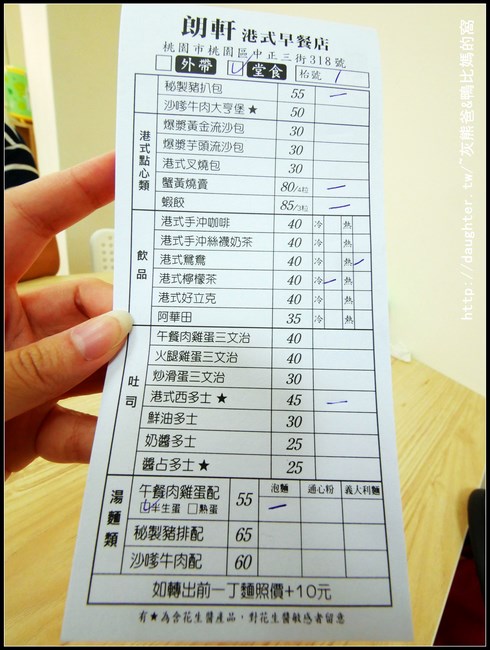 朗軒 港式早餐店
桃園市桃園區中正三街318號
外帶 堂食 枱號 1
秘製豬扒包 55
沙嗲牛肉大亨堡★ 50
港式點心類
爆漿黃金流沙包 30
爆漿芋頭流沙包 30
港式叉燒包 30
蟹黃燒賣 80/4粒
蝦餃 85/3粒
飲品
港式手沖咖啡 40 冷 熱
港式手沖絲襪奶茶 40 冷 熱
港式鴛鴦 40 冷 熱
港式檸檬茶 40 冷 熱
港式好立克 40 冷 熱
阿華田 35 冷 熱
吐司
午餐肉雞蛋三文治 40
火腿雞蛋三文治 40
炒滑蛋三文治 30
港式西多士★ 45
鮮油多士 30
奶醬多士 25
醬占多士★ 25
湯麵類
泡麵 通心粉 義大利麵
午餐肉雞蛋配 55
半生蛋 熟蛋
秘製豬排配 65
沙嗲牛肉配 60
如轉出前一丁麵照價+10元
有★為含花生醬產品，對花生醬敏感者留意
http://daughter.tw/~灰熊爸&鴨比媽的窩